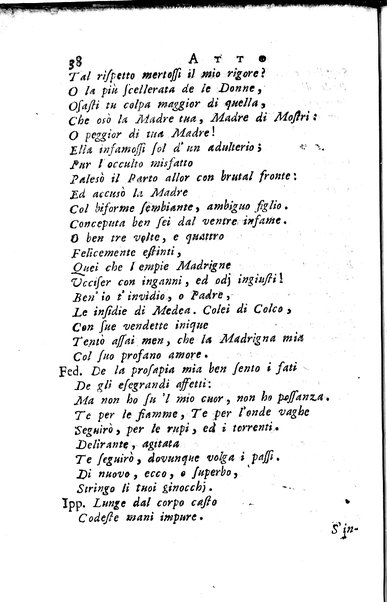 38 Atto
Tal rispetto mertossi il mio rigore?
O la più scellerata de le Donne,
Osasti tu colpa maggior di quella,
Che osò la Madre tua, Madre di Mostri:
O peggior di tua Madre!
Ella infamossi sol d'un adulterio;
Pur l'occulto misfatto
Palesò il Parto allor con brutal fronte:
Ed accusò la Madre
Col biforme sembiante, ambiguo figlio.
Conceputa ben sei dal ventre infame.
O ben tre volte, e quattro
Felicemente estinti,
Quei che l'empie Madrigne
Ucciser con inganni, ed odj ingiusti!
Ben'io t'invidio, o Padre,
Le insidie di Medea. Colei di Colco,
Con sue vendette inique
Tentò assai men, che la Madrigna mia
Col suo profano amore.
Fed. De la prosapia mia ben sento i fati
De gli esegrandi affetti:
Ma non ho su 'l mio cuor, non ho possanza.
Te per le fiamme, Te per l'onde vaghe
Seguirò, per le rupi, ed i torrenti.
Delirante, agitata
Te seguirò, dovunque volga i passi.
Di nuovo, ecco, o superbo,
Stringo li tuoi ginocchj.
Ipp. Lunge dal corpo casto
Codeste mani impure.
S'in-